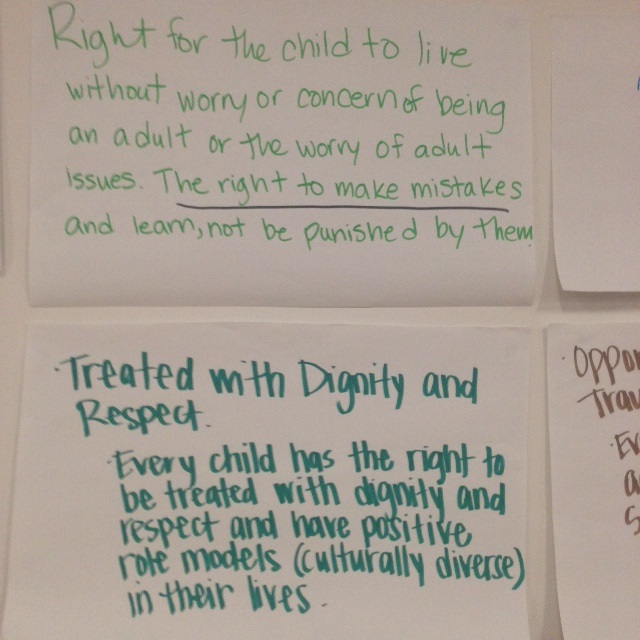 Right for the child to live
without worry or concern of being
an adult or the worry of adult
issues. The right to make mistakes
and learn, not be punished by them.
· Treated with Dignity and
Respect.
· Every child has the right to
be treated with dignity and
respect and have positive
role models (culturally diverse)
in their lives.